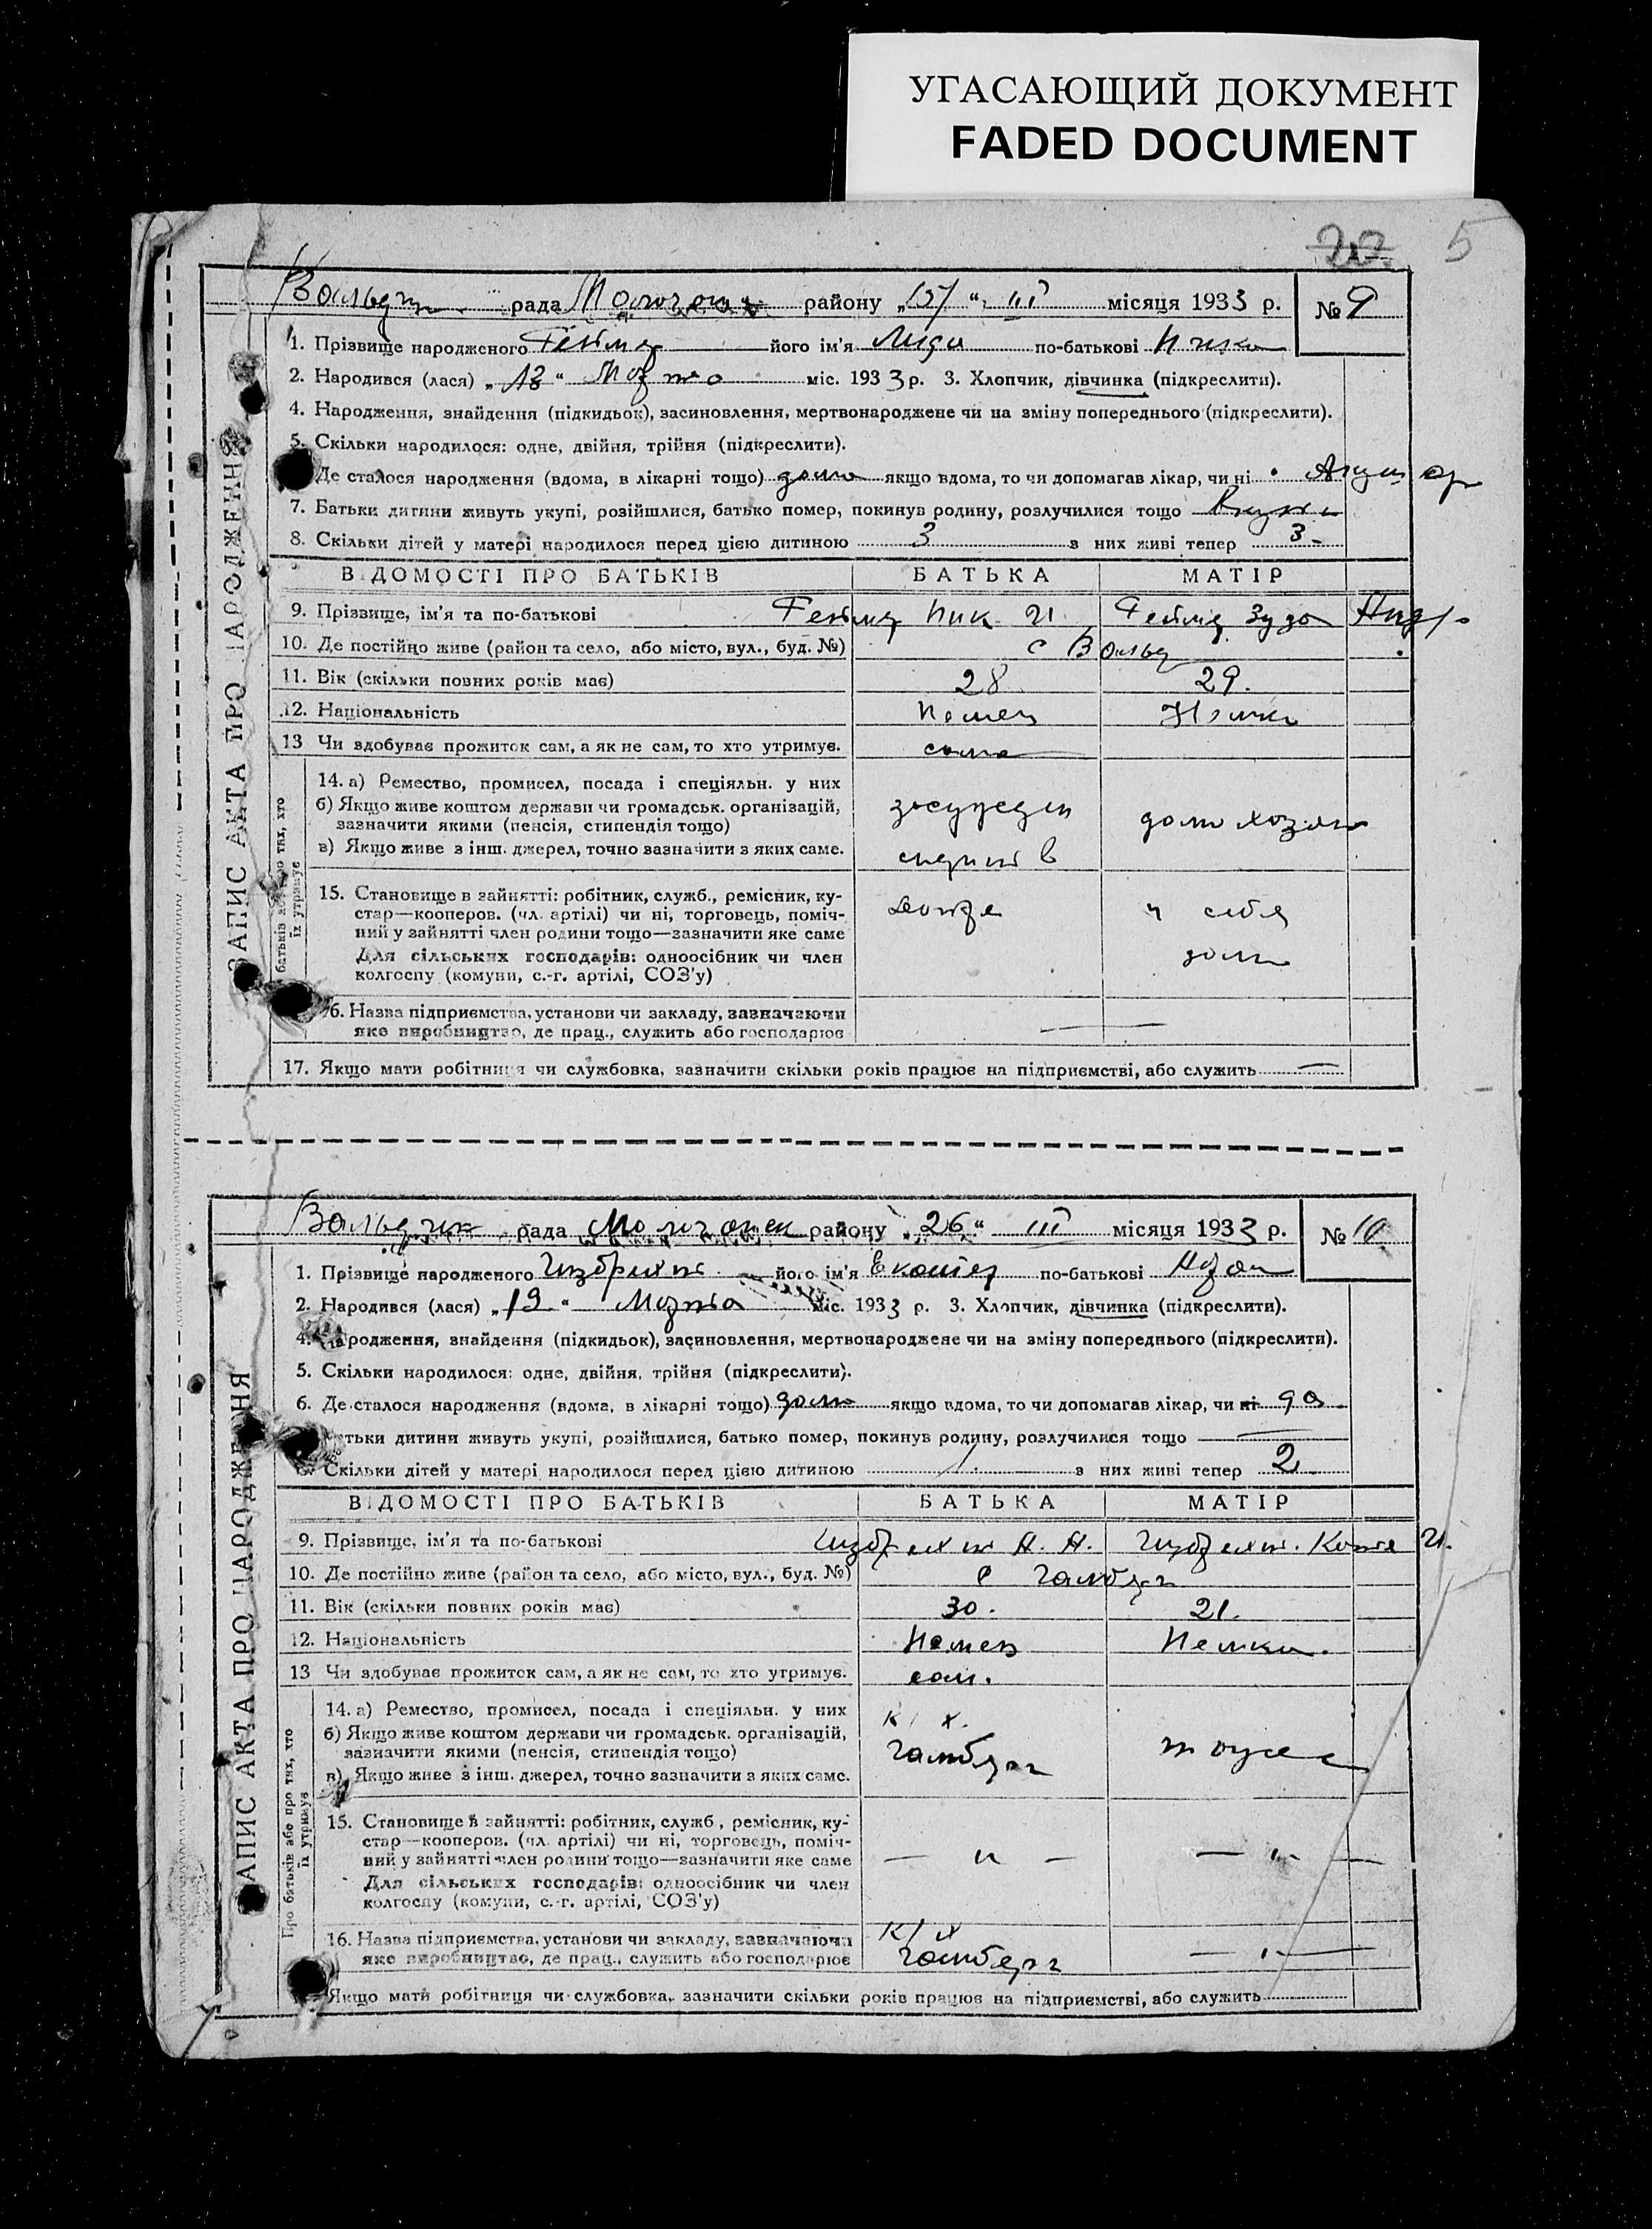 УГАСАЮЩИЙ ДОКУМЕНТ
FADED DOCUMENT
5
ЗАПИС АКТА ПРО НАРОДЖЕННЯ
рада району „ “ III місяця 1933 р. № 9
1. Прізвище народженого його ім'я Лида по-батькові
2. Народився (лася) „13“ Марта міс. 1933 р. 3. Хлопчик, дівчинка (підкреслити).
4. Народження, знайдення (підкидьок), засиновлення, мертвонароджене чи на зміну попереднього (підкреслити).
5. Скільки народилося: одне, двійня, трійня (підкреслити).
Де сталося народження (вдома, в лікарні тощо) дома якщо вдома, то чи допомагав лікар, чи ні
7. Батьки дитини живуть укупі, розійшлися, батько помер, покинув родину, розлучилися тощо
8. Скільки дітей у матері народилося перед цією дитиною 3 з них живі тепер 3-
ВІДОМОСТІ ПРО БАТЬКІВ БАТЬКА МАТІР
9. Прізвище, ім'я та по-батькові
10. Де постійно живе (район та село, або місто, вул., буд. №) с Вальд
11. Вік (скільки повних років має) 28 29.
12. Національність Немец Немка
13 Чи здобуває прожиток сам, а як не сам, то хто утримує.
14. а) Ремество, промисел, посада і спеціяльн. у них
б) Якщо живе коштом держави чи громадськ. організацій,
зазначити якими (пенсія, стипендія тощо)
в) Якщо живе з інш. джерел, точно зазначити з яких саме.
15. Становище в зайнятті: робітник, служб., ремісник, ку-
стар—кооперов. (чл. артілі) чи ні, торговець, поміч-
ний у зайнятті член родини тощо—зазначити яке саме
Для сільських господарів: одноосібник чи член
колгоспу (комуни, с.-г. артілі, СОЗ'у)
у себя
дома
16. Назва підприємства, установи чи закладу, зазначаючи
яке виробництво, де прац., служить або господарює
17. Якщо мати робітниця чи службовка, зазначити скільки років працює на підприємстві, або служить —
ЗАПИС АКТА ПРО НАРОДЖЕННЯ
рада району „26“ III місяця 1933 р. № 10
1. Прізвище народженого його ім'я по-батькові
2. Народився (лася) „19“ Марта міс. 1933 р. 3. Хлопчик, дівчинка (підкреслити).
4. Народження, знайдення (підкидьок), засиновлення, мертвонароджене чи на зміну попереднього (підкреслити).
5. Скільки народилося: одне, двійня, трійня (підкреслити).
6. Де сталося народження (вдома, в лікарні тощо) дома якщо вдома, то чи допомагав лікар, чи ні да
Батьки дитини живуть укупі, розійшлися, батько помер, покинув родину, розлучилися тощо —
8. Скільки дітей у матері народилося перед цією дитиною 1 з них живі тепер 2
ВІДОМОСТІ ПРО БАТЬКІВ БАТЬКА МАТІР
9. Прізвище, ім'я та по-батькові
10. Де постійно живе (район та село, або місто, вул., буд. №) с Гамберг
11. Вік (скільки повних років має) 30. 21.
12. Національність Немец Немка.
13 Чи здобуває прожиток сам, а як не сам, то хто утримує. сам.
Про батьків або про тих, хто
їх утримує
14. а) Ремество, промисел, посада і спеціяльн. у них
б) Якщо живе коштом держави чи громадськ. організацій,
зазначити якими (пенсія, стипендія тощо)
в) Якщо живе з інш. джерел, точно зазначити з яких саме.
к/х.
Гамберг
15. Становище в зайнятті: робітник, служб., ремісник, ку-
стар—кооперов. (чл. артілі) чи ні, торговець, поміч-
ний у зайнятті член родини тощо—зазначити яке саме
Для сільських господарів: одноосібник чи член
колгоспу (комуни, с.-г. артілі, СОЗ'у)
— „ — — „ —
16. Назва підприємства, установи чи закладу, зазначаючи
яке виробництво, де прац., служить або господарює
к/х
Гамберг — „ —
Якщо мати робітниця чи службовка, зазначити скільки років працює на підприємстві, або служить